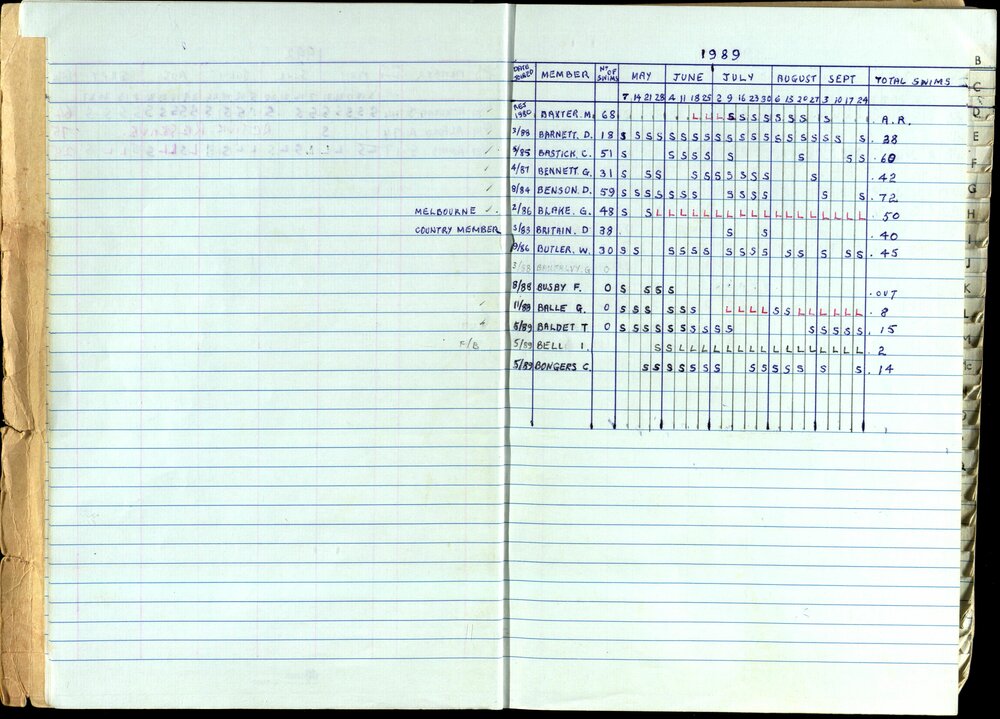 1989
DATE JOINED MEMBER Nº OF SWIMS MAY JUNE JULY AUGUST SEPT TOTAL SWIMS
7 14 21 28 4 11 18 25 2 9 16 23 30 6 13 20 27 3 10 17 24
RES 1980 BAXTER. M. 68 L L L S S S S S S S S A.R.
3/88 BARNETT. D. 18 S S S S S S S S S S S S S S S S S S S S 38
9/85 BASTICK. C. 51 S S S S S S S S S 60
4/87 BENNETT. G. 31 S S S S S S S S S S S 42
8/84 BENSON. D. 59 S S S S S S S S S S S S S 72
MELBOURNE 2/86 BLAKE. G. 48 S S L L L L L L L L L L L L L L L L L L 50
COUNTRY MEMBER 3/83 BRITAIN. D 38 S S 40
9/86 BUTLER. W. 30 S S S S S S S S S S S S S S S 45
3/88 G. 0
8/88 BUSBY F. 0 S S S S S OUT
11/88 BALLE G. 0 S S S S S S L L L L S S L L L L L L 8
5/89 BALDET T 0 S S S S S S S S S S S S S S S 15
F/B 5/89 BELL I. S S L L L L L L L L L L L L L L L L 2
5/89 BONGERS C. S S S S S S S S S S S S S S S 14
B
C
D
E
F
G
H
I
J
K
L
M
Mc